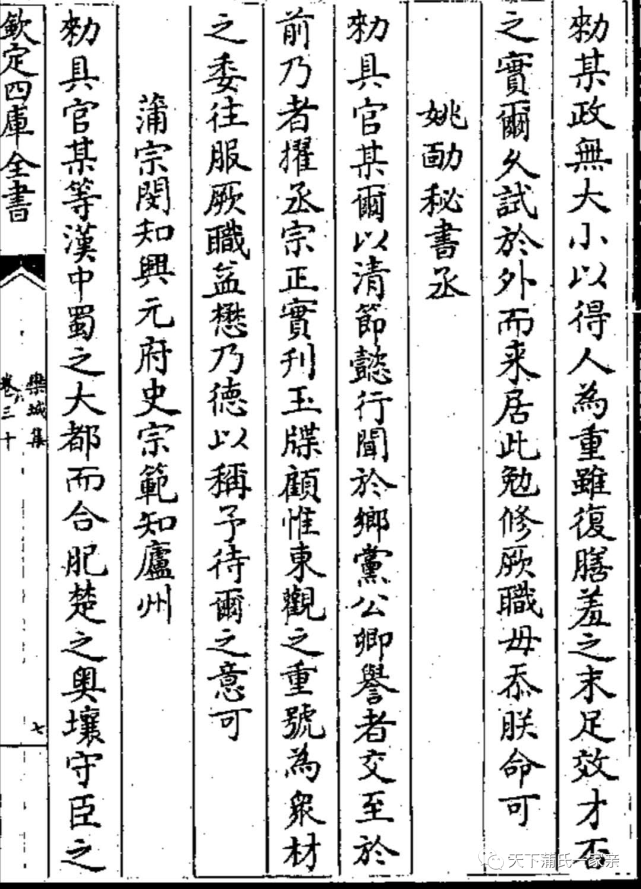 勑某政無大小以得人為重雖復膳羞之末足效才否
之實爾久試於外而来居此勉修厥職毋忝朕命可
姚勔秘書丞
勑具官某爾以清節懿行聞於鄉黨公卿譽者交至於
前乃者擢丞宗正實刋玉牒顧惟東觀之重號為衆材
之委往服厥職益懋乃德以稱予待爾之意可
蒲宗閔知興元府史宗範知廬州
勑具官某等漢中蜀之大都而合肥楚之奥壤守臣之
欽定四庫全書
欒城集
卷三十
七
天下蒲氏一家亲